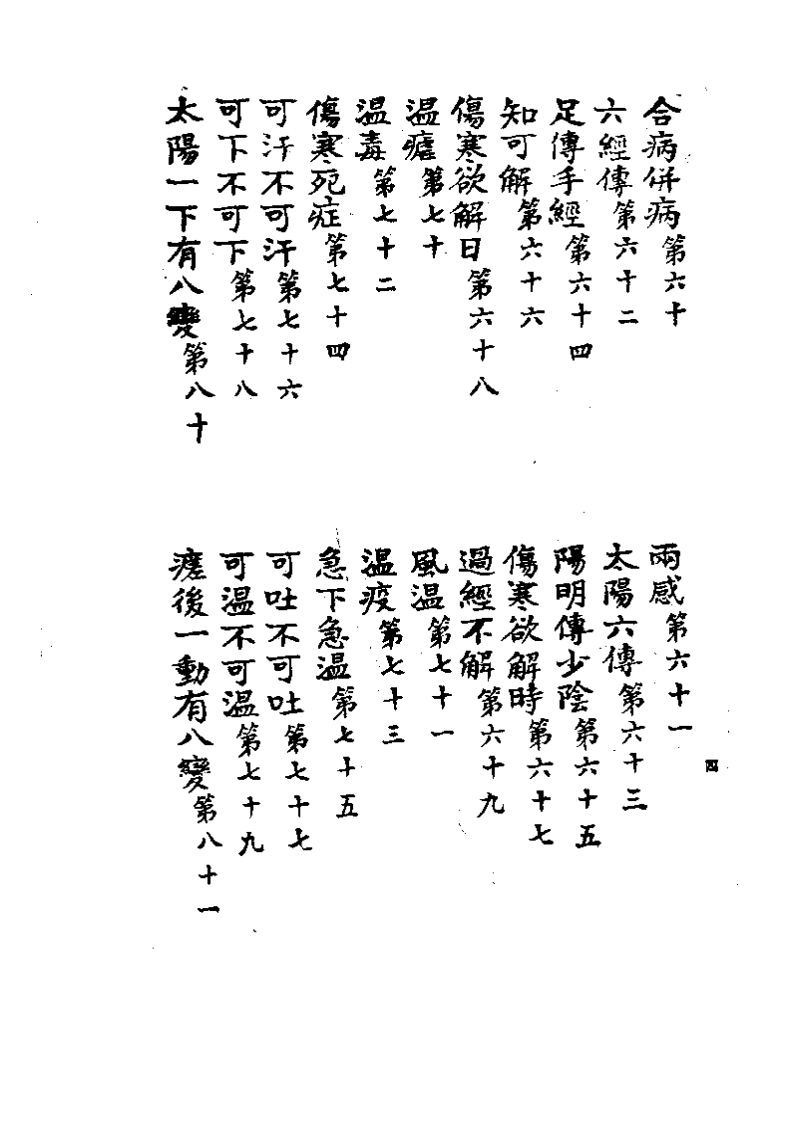 合病併病第六十
兩感第六十一
六經傳第六十二
太陽六傳第六十三
足傳手經第六十四
陽明傳少陰第六十五
知可解第六十六
傷寒欲解時第六十七
傷寒欲解日第六十八
過經不解第六十九
温瘧第七十
風温第七十一
温毒第七十二
温疫第七十三
傷寒死症第七十四
急下急温第七十五
可汗不可汗第七十六
可吐不可吐第七十七
可下不可下第七十八
可温不可温第七十九
太陽一下有八變第八十
瘥後一動有八變第八十一
四